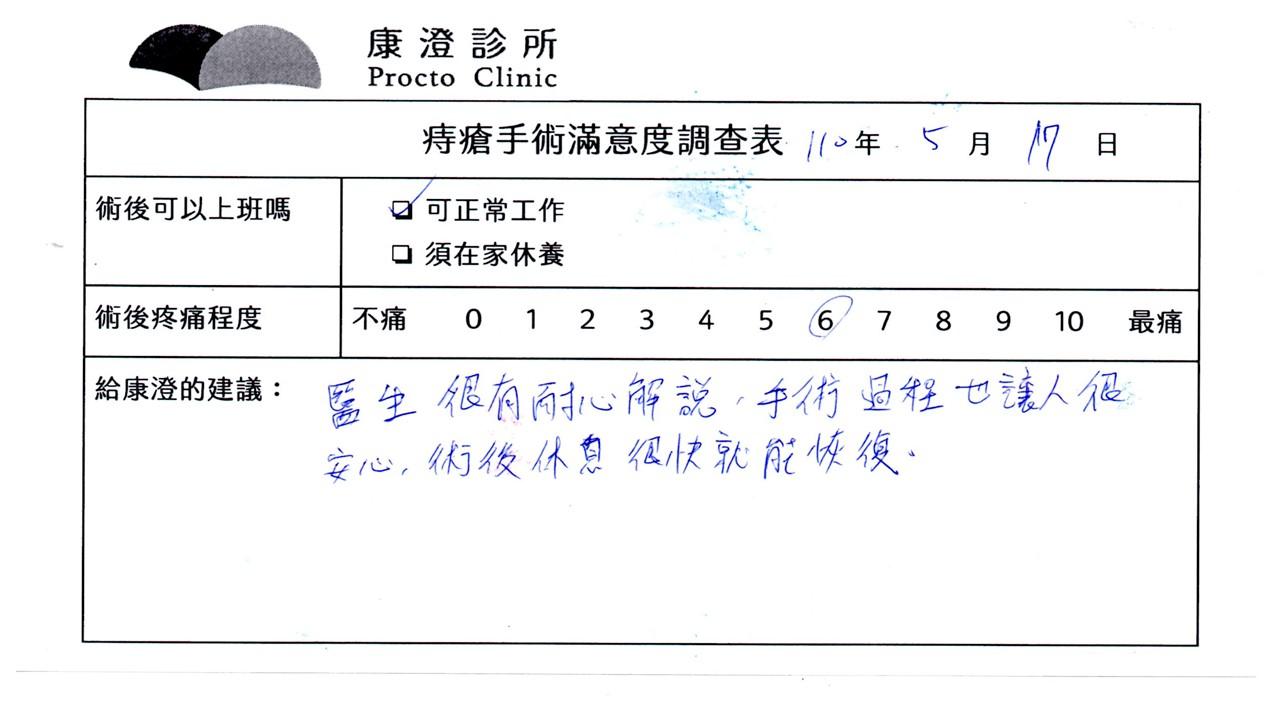 康澄診所
Procto Clinic
痔瘡手術滿意度調查表 110年 5 月 17 日
術後可以上班嗎
☑ 可正常工作
❏ 須在家休養
術後疼痛程度 不痛 0 1 2 3 4 5 6 7 8 9 10 最痛
給康澄的建議：
醫生 很有耐心解說，手術過程也讓人很
安心，術後休息 很快就能恢復。